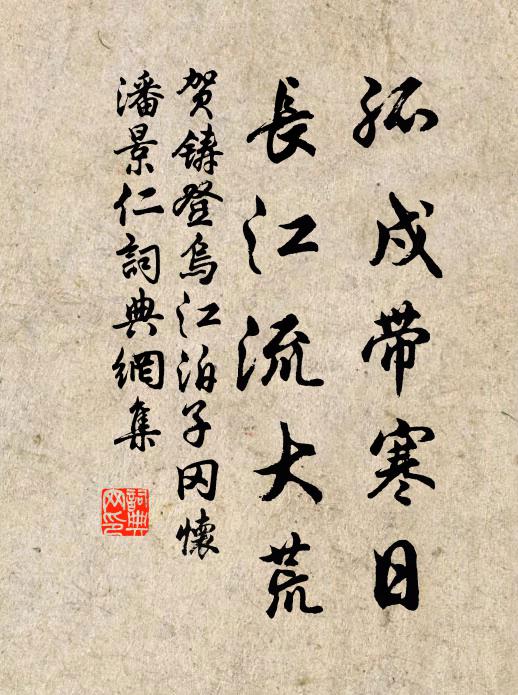 孤戍带寒日
長江流大荒
贺鑄登烏江泊子冈懷
潘景仁詞典網集
詞典网印